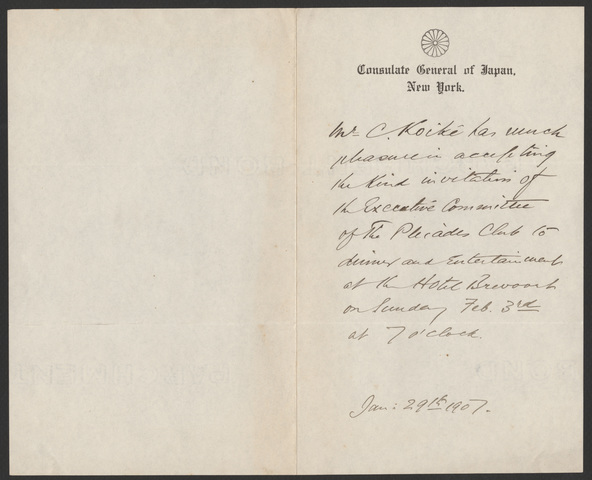 Consulate General of Japan,
New York.
Mr. C. Koiké has much
pleasure in accepting
the kind invitation of
the Executive Committee
of The Pleiades Club to
dinner and Entertainment
at the Hotel Brevoort
on Sunday Feb. 3rd
at 7 o'clock.
Jan: 29th 1907.